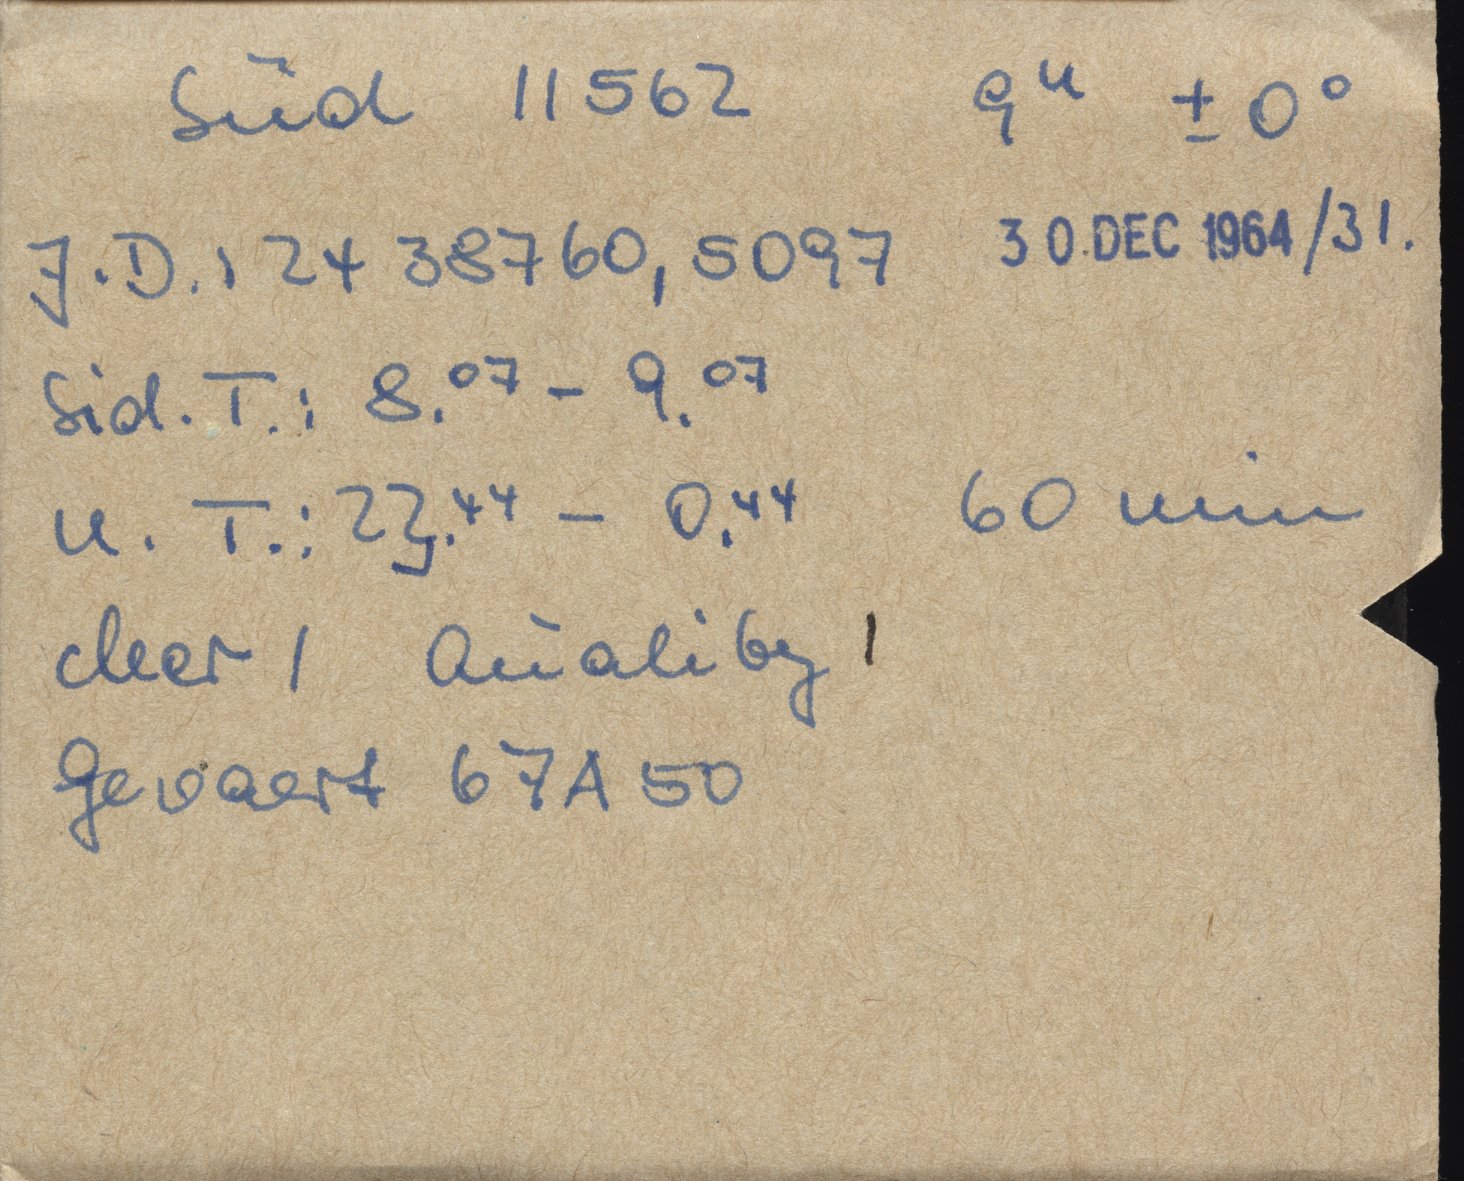 Süd 11562 9ᵘ ± 0°
J.D.: 24 38760,5097 30. DEC 1964/31.
Sid. T.: 8.⁰⁷ – 9.⁰⁷
U. T.: 23.⁴⁴ – 0.⁴⁴ 60 min
clear 1 Quality 1
Gevaert 67A50